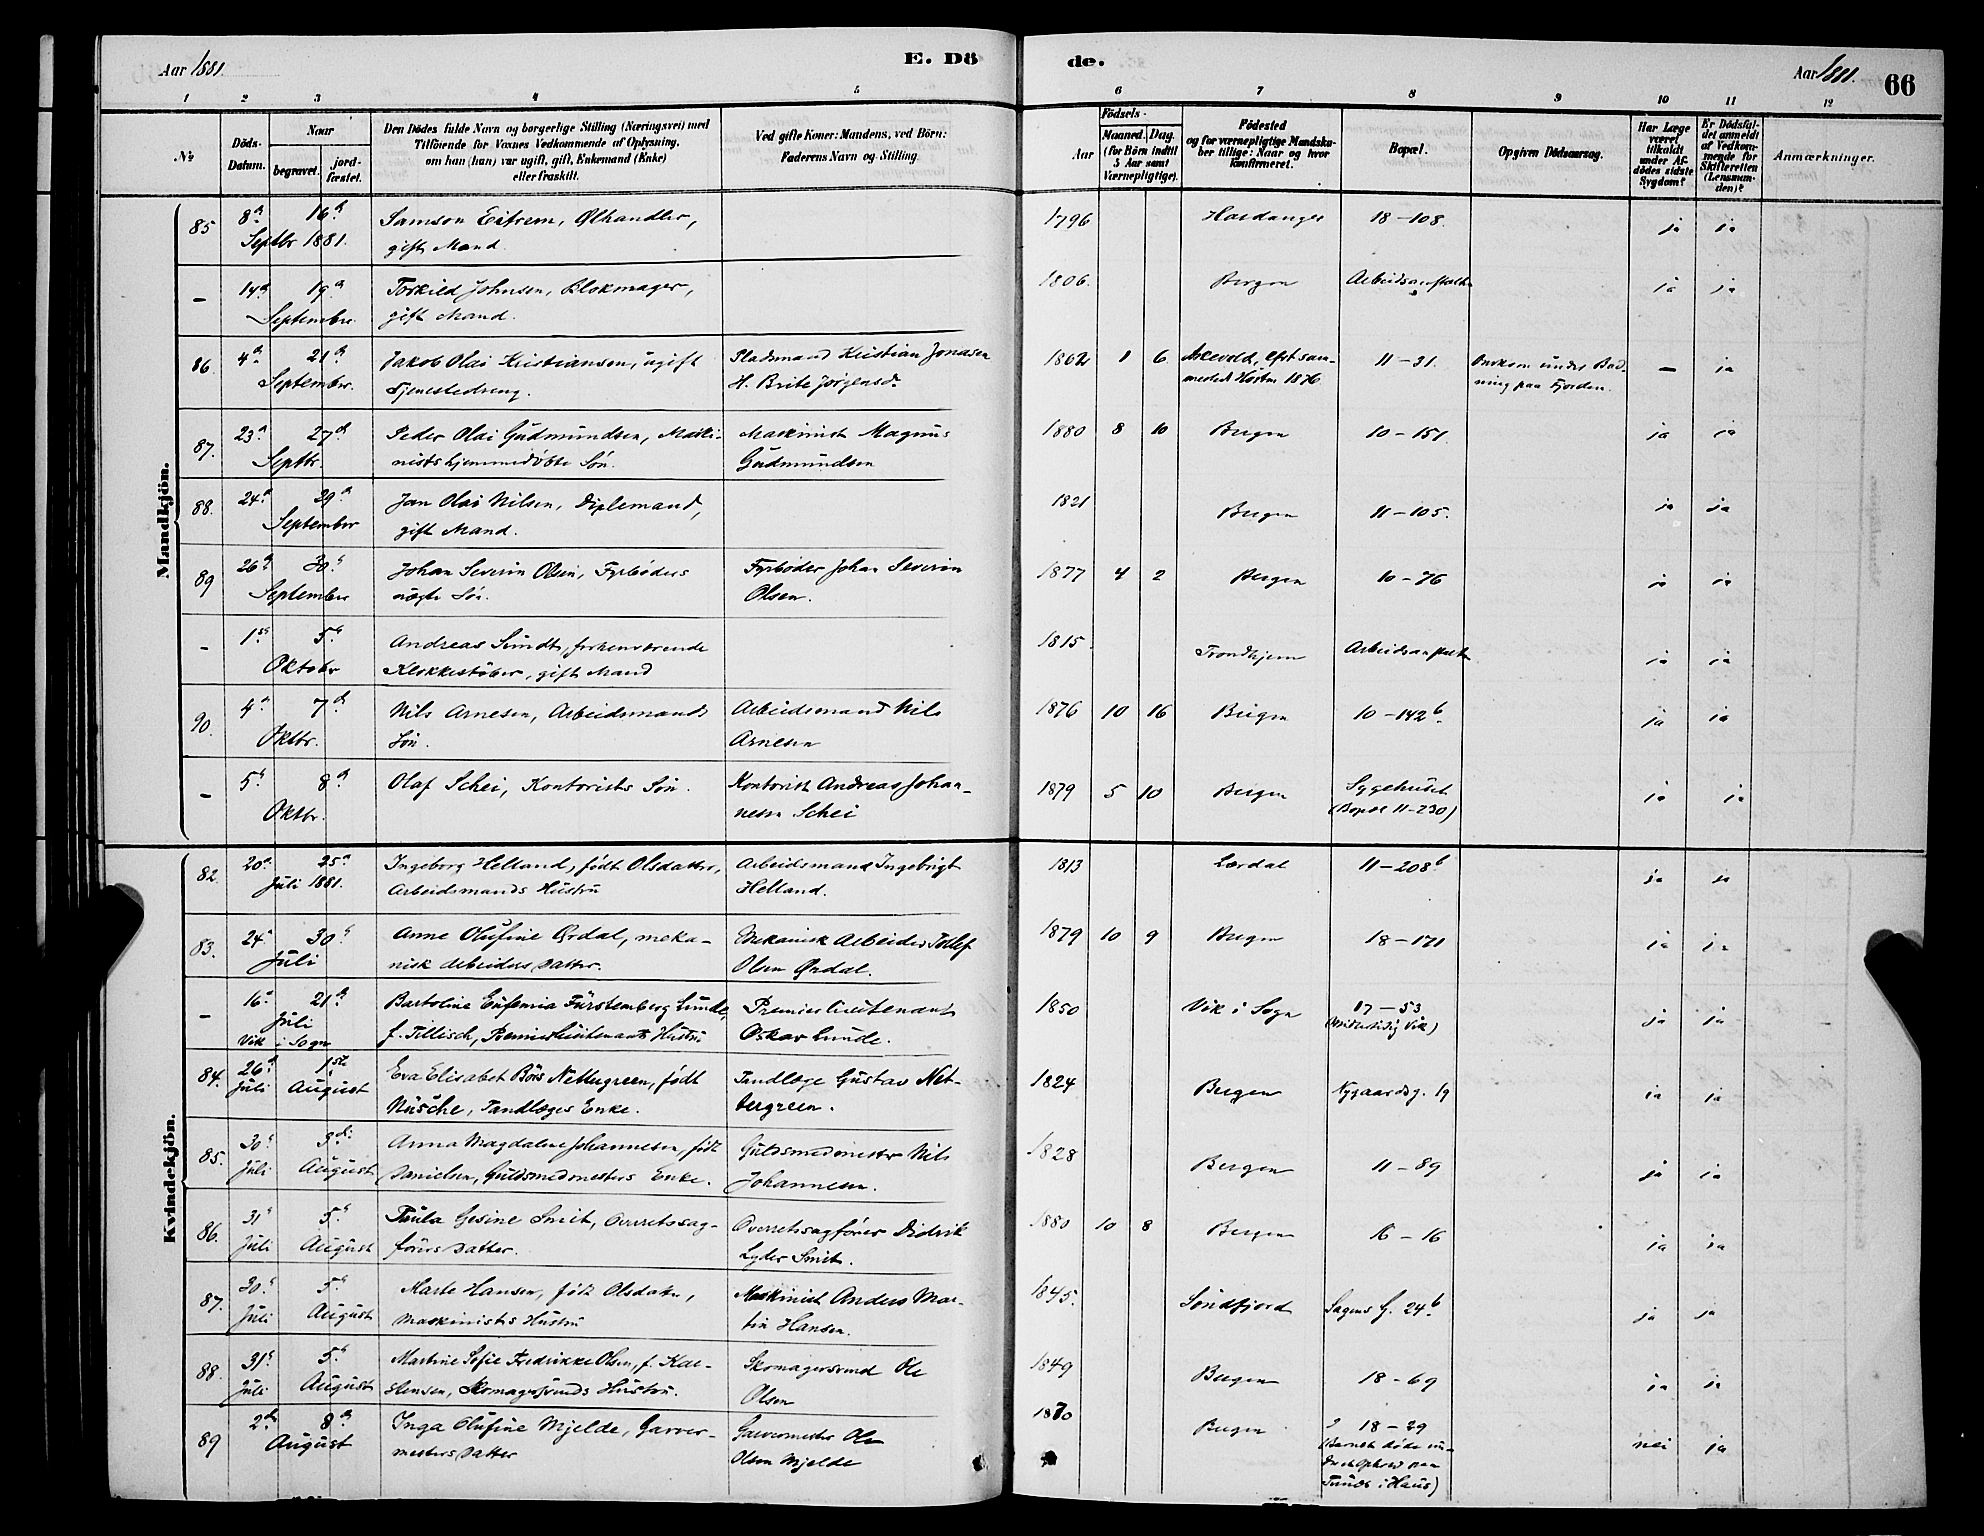 Aar 1881.
E. Dö
de.
Aar 1881.
66
1 2 3 4 5 6 7 8 9 10 11 12
No
Döds-Datum.
Naar
begravet.
jord-fæstet.
Den Dödes fulde Navn og borgerlige Stilling (Næringsvei) med
Tilföiende for Voxnes Vedkommende af Oplysning,
om han (hun) var ugift, gift, Enkemand (Enke)
eller fraskilt.
Ved gifte Koner: Mandens, ved Börn:
Faderens Navn og Stilling.
Födsels-
Aar
Maaned. Dag.
(for Börn indtil
5 Aar samt
Værnepligtige).
Födested
og for værnepligtige Mandska-
ber tillige: Naar og hvor
konfirmeret.
Bopæl.
Opgiven Dödsaarsag.
Har Læge
været
tilkaldt
under Af-
dödes sidste
Sygdom?
Er Dödsfal-
det anmeldt
af Vedkom-
mende for
Skifteretten
(Lensman-
den)?
Anmærkninger.
Mandkjön.
85 8de 16de Samson Eitrem, Ølhandler, 1796 Hardanger 18-108. ja ja
Septbr 1881. gift Mand.
- 14de 19de Torkild Johnsen, Blokmager, 1806. Bergen Arbeidsanstalten ja ja
Septembre. gift Mand.
86. 4de 21de Jakob Olai Kristiansen, ugift Pladsmand Kristian Jonasen 1862 1 6 Askevold, 11-31. under Bad- - ja
September. Tjenestedreng. H. Brite Jørgensd. Høsten 1876 ning paa Fjorden.
87. 23de 27de Peder Olai Gudmundsen, Maski- Maskinist Magnus 1880 8 10 Bergen 10-151. ja ja
Septbr. nists hjemmedøbte Søn. Gudmundsen
88. 24de 29de Jan Olai Nilsen, gift Mand. 1821 Bergen 11-105. ja ja
September
89 26de 30te Johan Severin Olsen, Fyrbøders Fyrbøder Johan Severin 1877 4 2 Bergen 10-76 ja ja
September ægte Søn. Olsen.
- 1ste 5te Andreas Sundt, forhenværende 1815. Trondhjem Arbeidsanstalten ja ja
Oktobr Klokkestøber, gift Mand
90. 4de 7de Nils Arnesen, Arbeidsmands Arbeidsmand Nils 1876 10 16 Bergen 10-142b. ja ja
Oktbr. Søn. Arnesen
- 5te 8de Olaf Schei, Kontorists Søn. Kontorist Andreas Johan- 1879 5 10 Bergen Sygehuset ja ja
Oktbr. nesen Schei (Bopæl 11-230)
Kvindekjön.
82. 20de 25de Ingeborg Helland, født Olsdatter, Arbeidsmand Ingebrigt 1813 Lærdal 11-208b ja ja
Juli 1881. Arbeidsmands Hustru Helland.
83. 24de 30te Anne Olufine Ørdal, meka- Mekanisk Arbeider Tollef 1879 10 9 Bergen 18-171 ja ja
Juli nisk Arbeiders Datter. Olsen Ørdal.
- 16de 21de Bartoline Eufemia Fürstemberg Lunde, Premierlieutenant 1850 Vik i Sogn 17-53 ja ja
Juli f. Tillisch, Premierlieutenants Hustru Oskar Lunde. (midlertidig Vik)
Vik i Sogn
84. 26de 1ste Eva Elisabet Børs Nettergreen, født Tandlæge Gustav Net- 1824 Bergen Nygaardsg. 19 ja ja
Juli August Nüsche, Tandlæges Enke. tergreen.
85. 30te 3die Anna Magdalene Johannesen, født Guldsmedmester Nils 1828 Bergen 11-89 ja ja
Juli August Danielsen, Guldsmedmesters Enke. Johannesen.
86. 31te 5te Paula Gesine Smit, Overretssag- Overretssagfører Didrik 1880 10 8 Bergen 16-16 ja ja
Juli August førers Datter. Lyder Smit.
87. 30te 5te Marte Hansen, født Olsdatter, Maskinist Anders Mar- 1845. Søndfjord Sagens G. 24b ja ja
Juli August Maskinists Hustru tin Hansen.
88. 31te 5te Martine Sofie Fredrikke Olsen, f. Kar- Skomagersvend Ole 1849 Bergen 18-69 ja ja
Juli August stensen, Skomagersvends Hustru. Olsen
89 2den 8de Inga Olufine Mjelde, Garver- Garvermester Ole 1870 Bergen 18-29 nei ja
August mesters Datter Olsen Mjelde (Barnet døde un-
der et Ophold paa
Tunes i Haus)